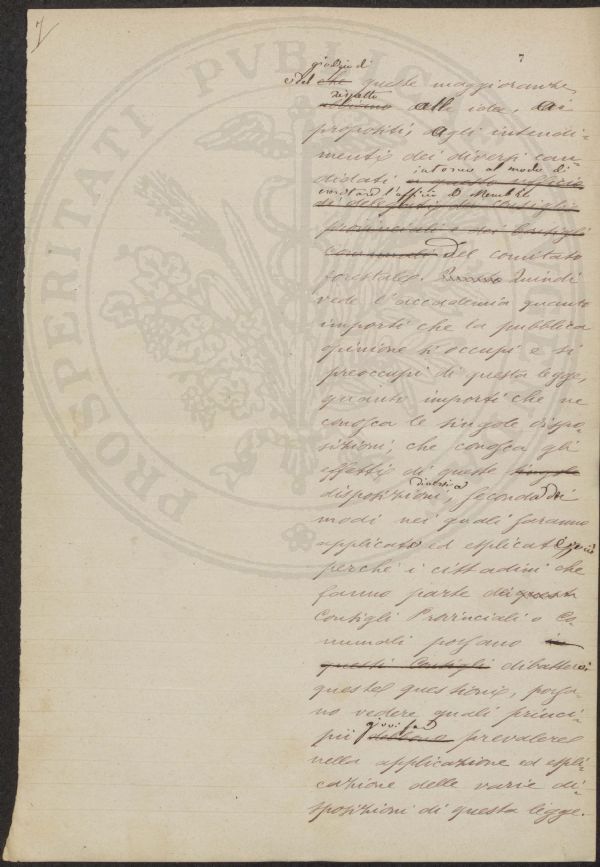 7
7
giudizio di
del che queste maggioranze
rispetto
abbiano alle idee, ai
propositi, agli intendi-
menti dei diversi can-
intorno al modo di
didati a questo ufficio
esercitare l'ufficio di Membro
di delegati dei Consigli
provinciali e dei Consigli
comunali del comitato
forestale. Quindi
vede l'accademia quanto
importi che la pubblica
opinione s'occupi e si
preoccupi di questa legge,
quanto importi che ne
conosca le singole dispo-
sizioni, che conosca gli
effetti di queste singole
diversi a
disposizioni, seconda dei
modi nei quali saranno
applicate ed esplicate
perché i cittadini che
fanno parte dei questi
Consigli Provinciali o Co-
munali possano in
questi Consigli dibattere
queste questioni, possa-
no vedere quali princi-
giovi far
pii debbano prevalere
nella applicazione ed espli-
cazione delle varie di-
sposizioni di questa legge.
PROSPERITATI PVBLICAE